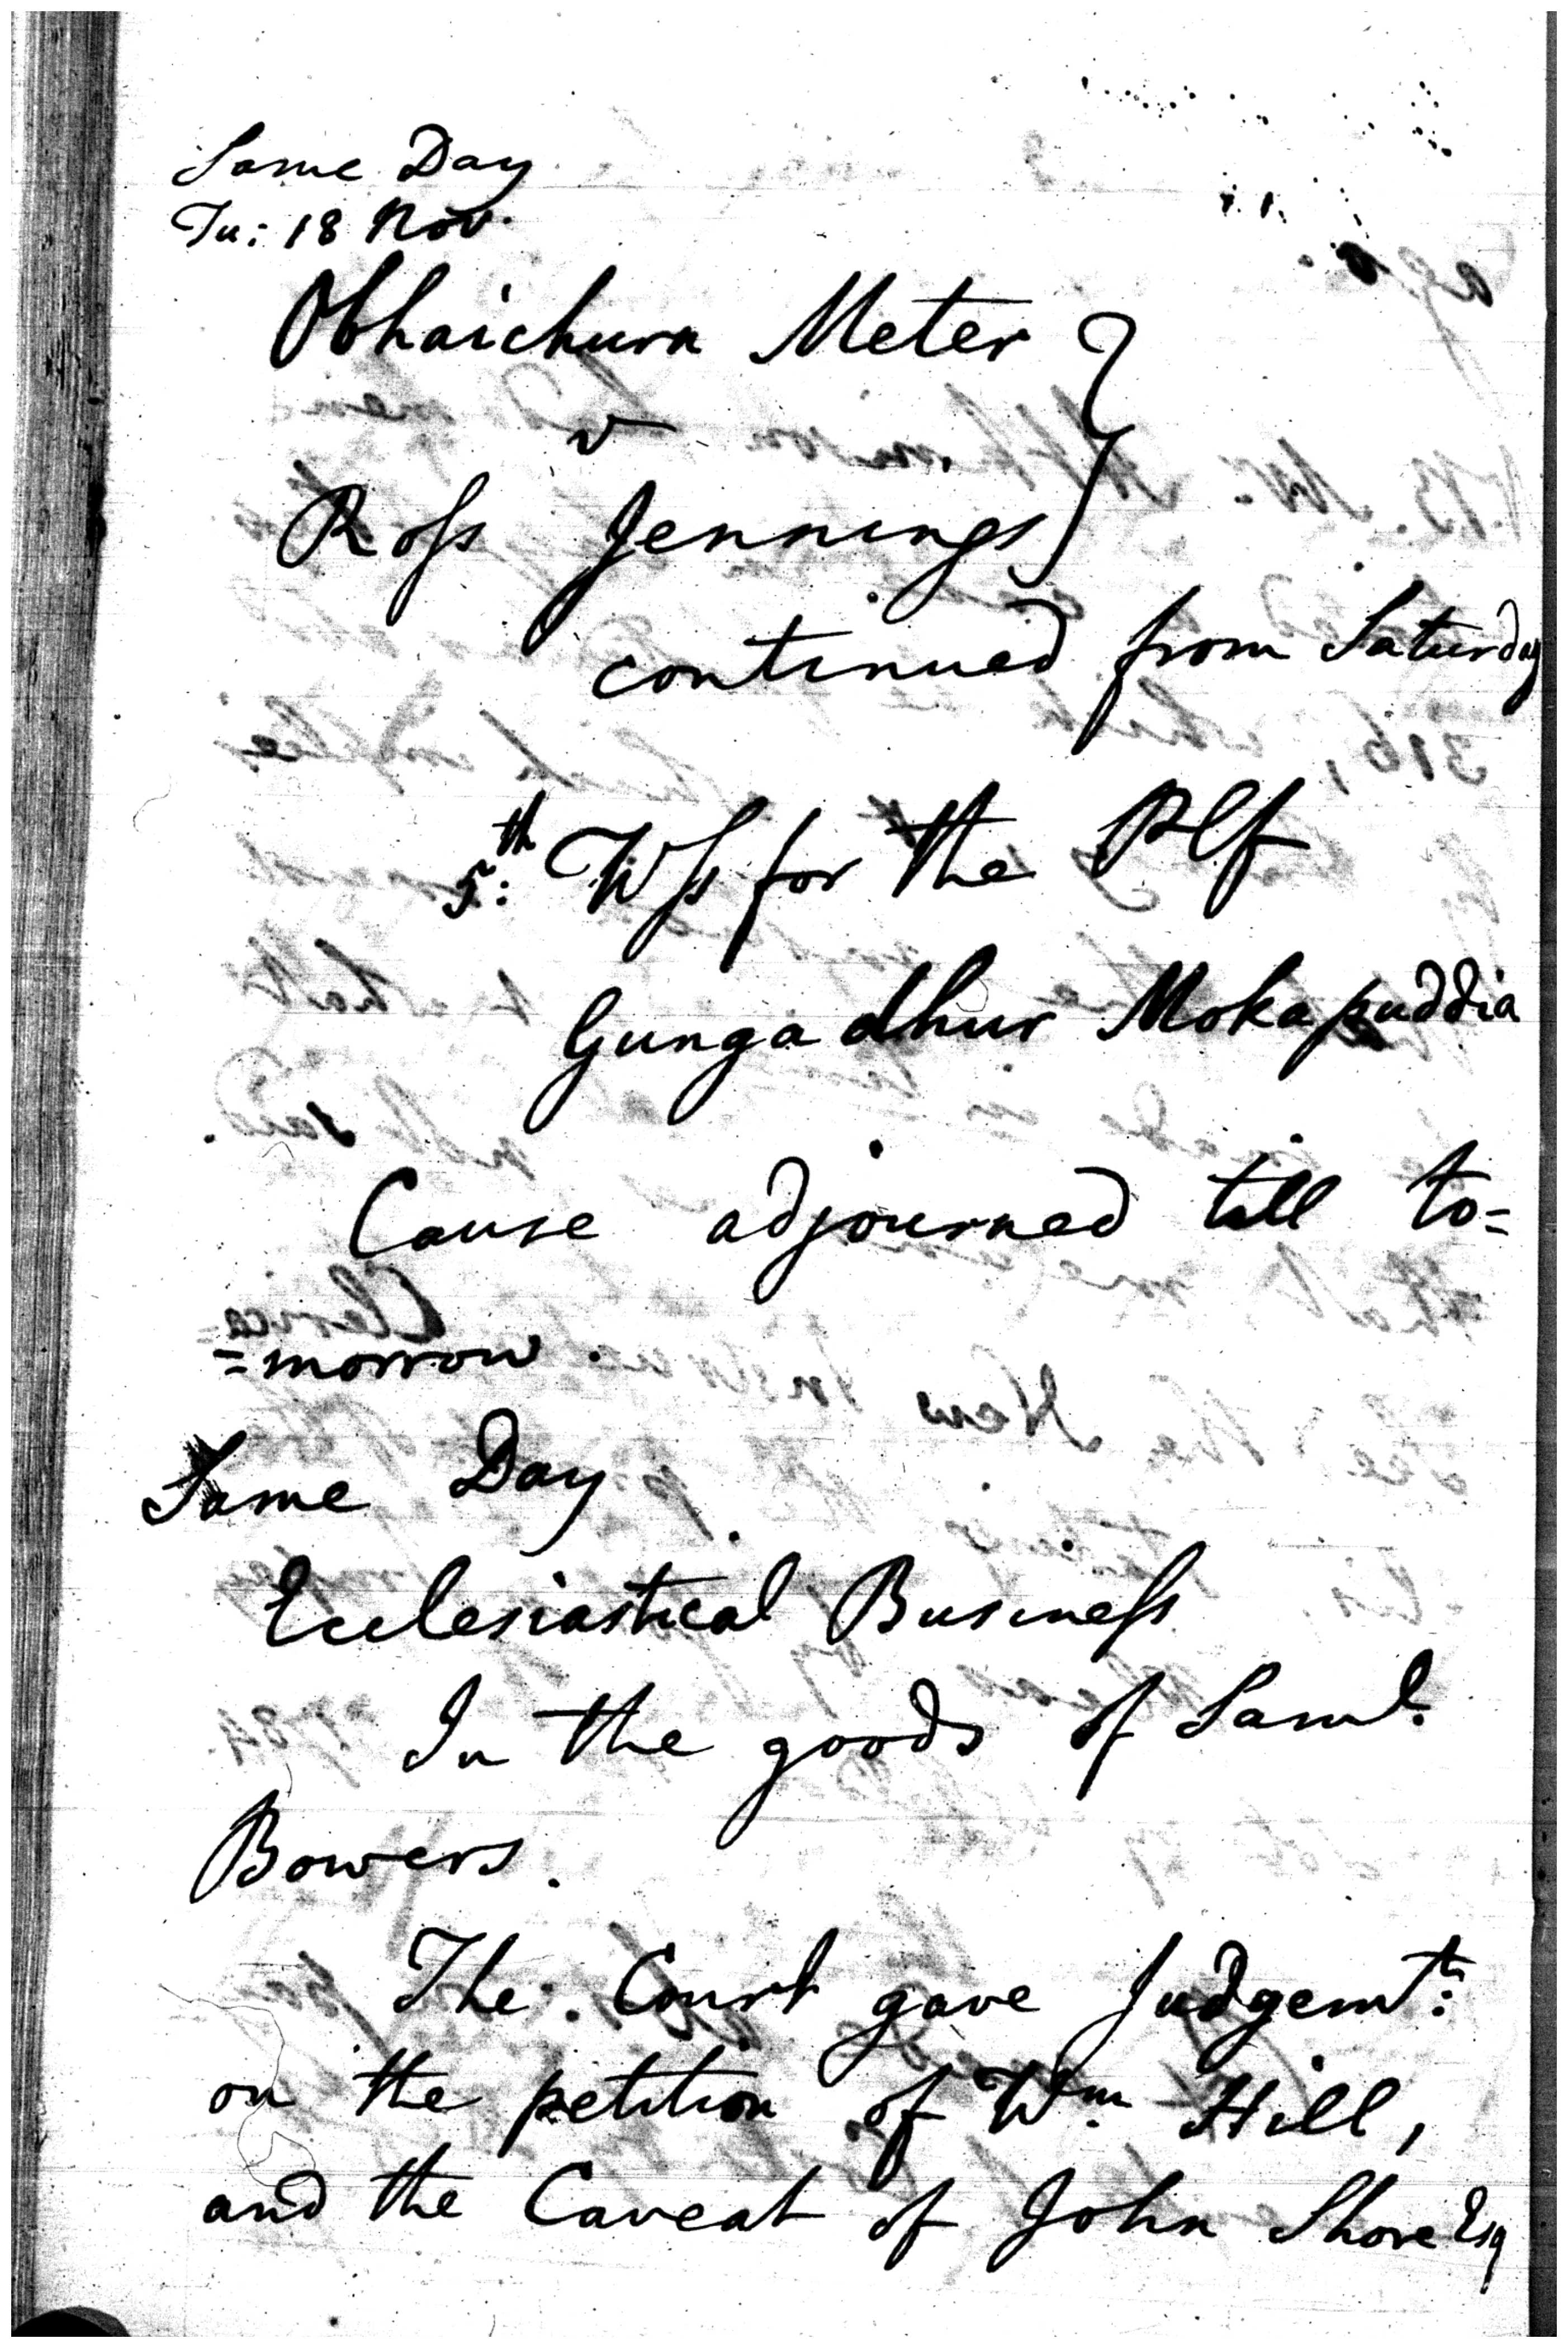 Same Day
Tu: 18 Nov.
Obhaichurn Meter
v
Ross Jennings
continued from Saturday
5th: Wss for the Plf
Gungadhur Mokapuddia
Cause adjourned till to=
=morrow.
Same Day.
Ecclesiastical Business
In the goods of Saml.
Bowers.
The Court gave Judgemt:
on the petition of Wm Hill,
and the Caveat of John Shore Esq